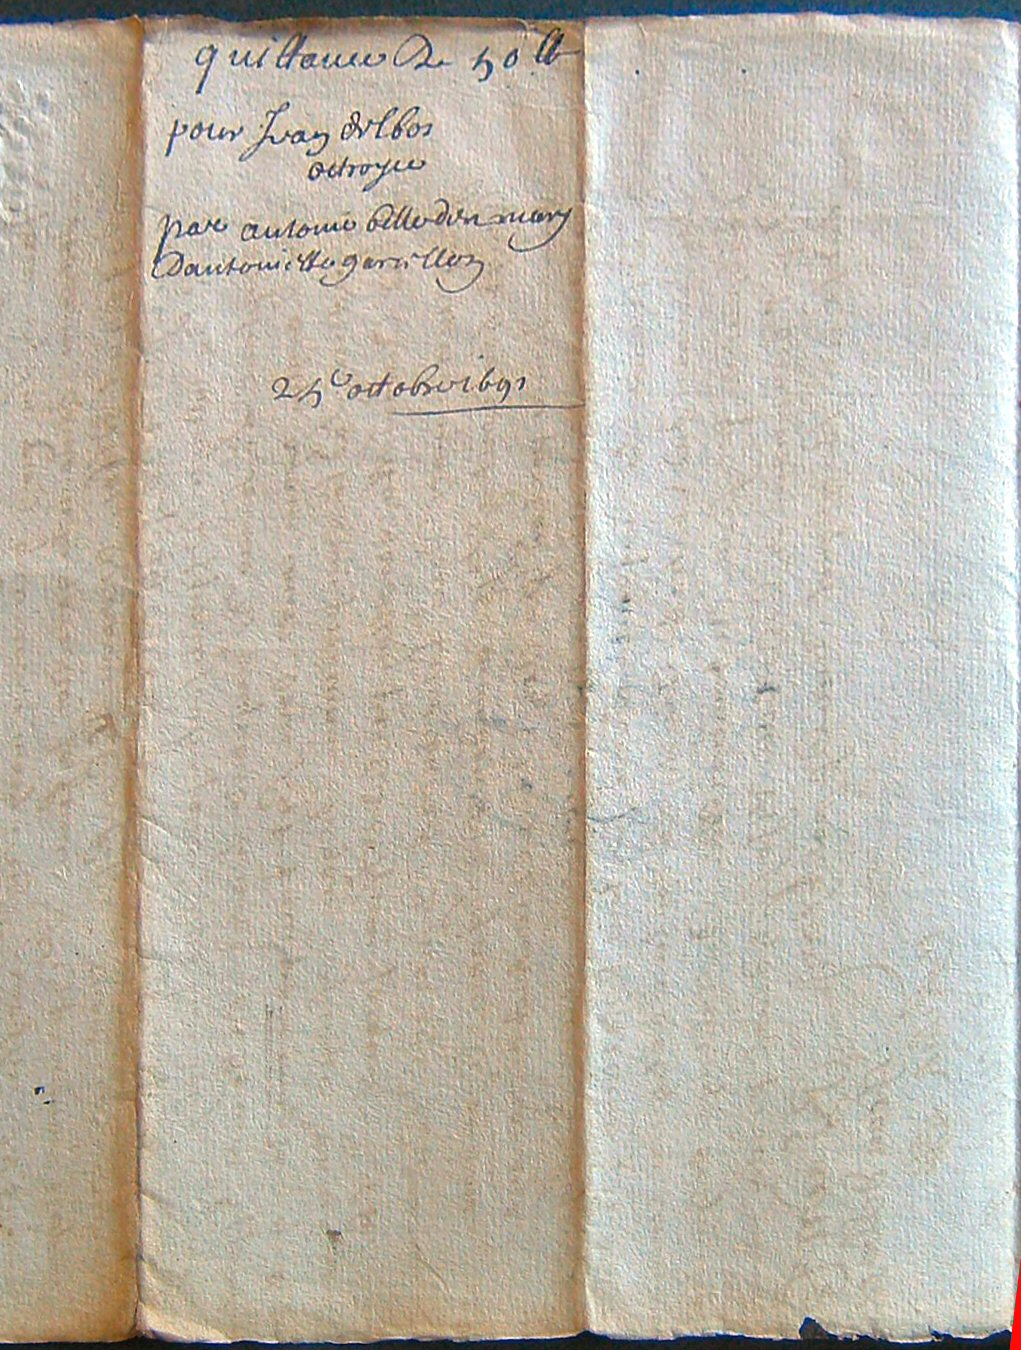 quittance de 50 lt
pour Jean delbos
octroyee
par antoine belleden mary
dantoinette garcellon
25e octobre 1691